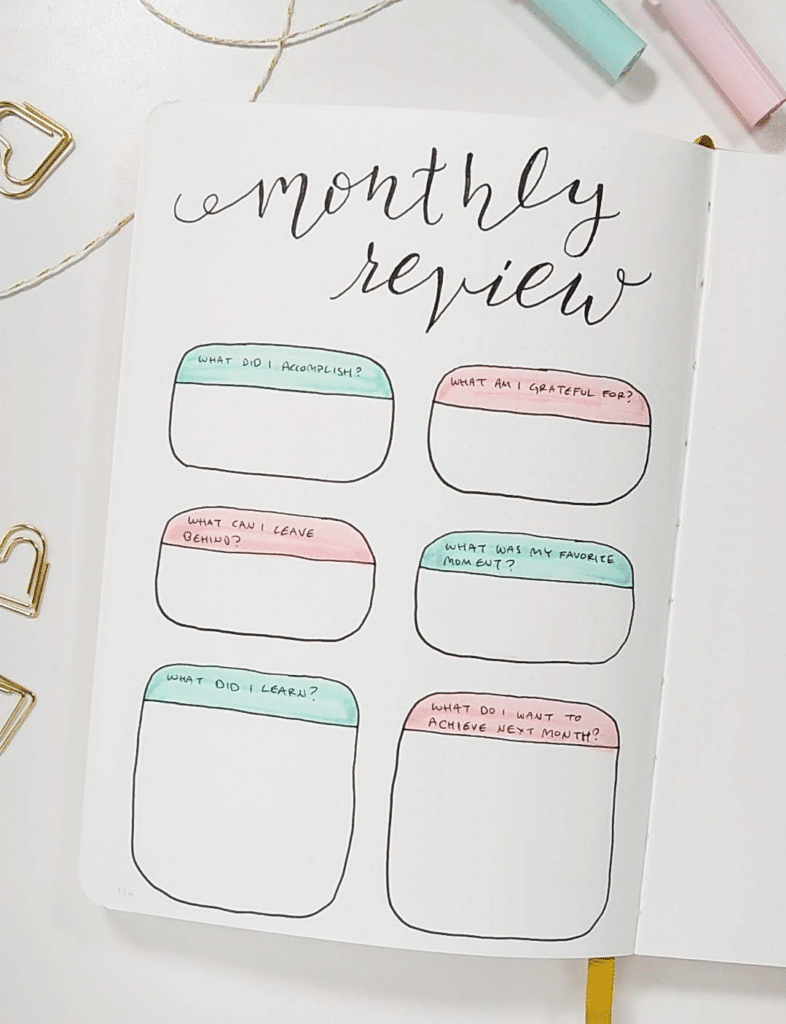 monthly
review
WHAT DID I ACCOMPLISH?
WHAT AM I GRATEFUL FOR?
WHAT CAN I LEAVE
BEHIND?
WHAT WAS MY FAVORITE
MOMENT?
WHAT DID I LEARN?
WHAT DO I WANT TO
ACHIEVE NEXT MONTH?